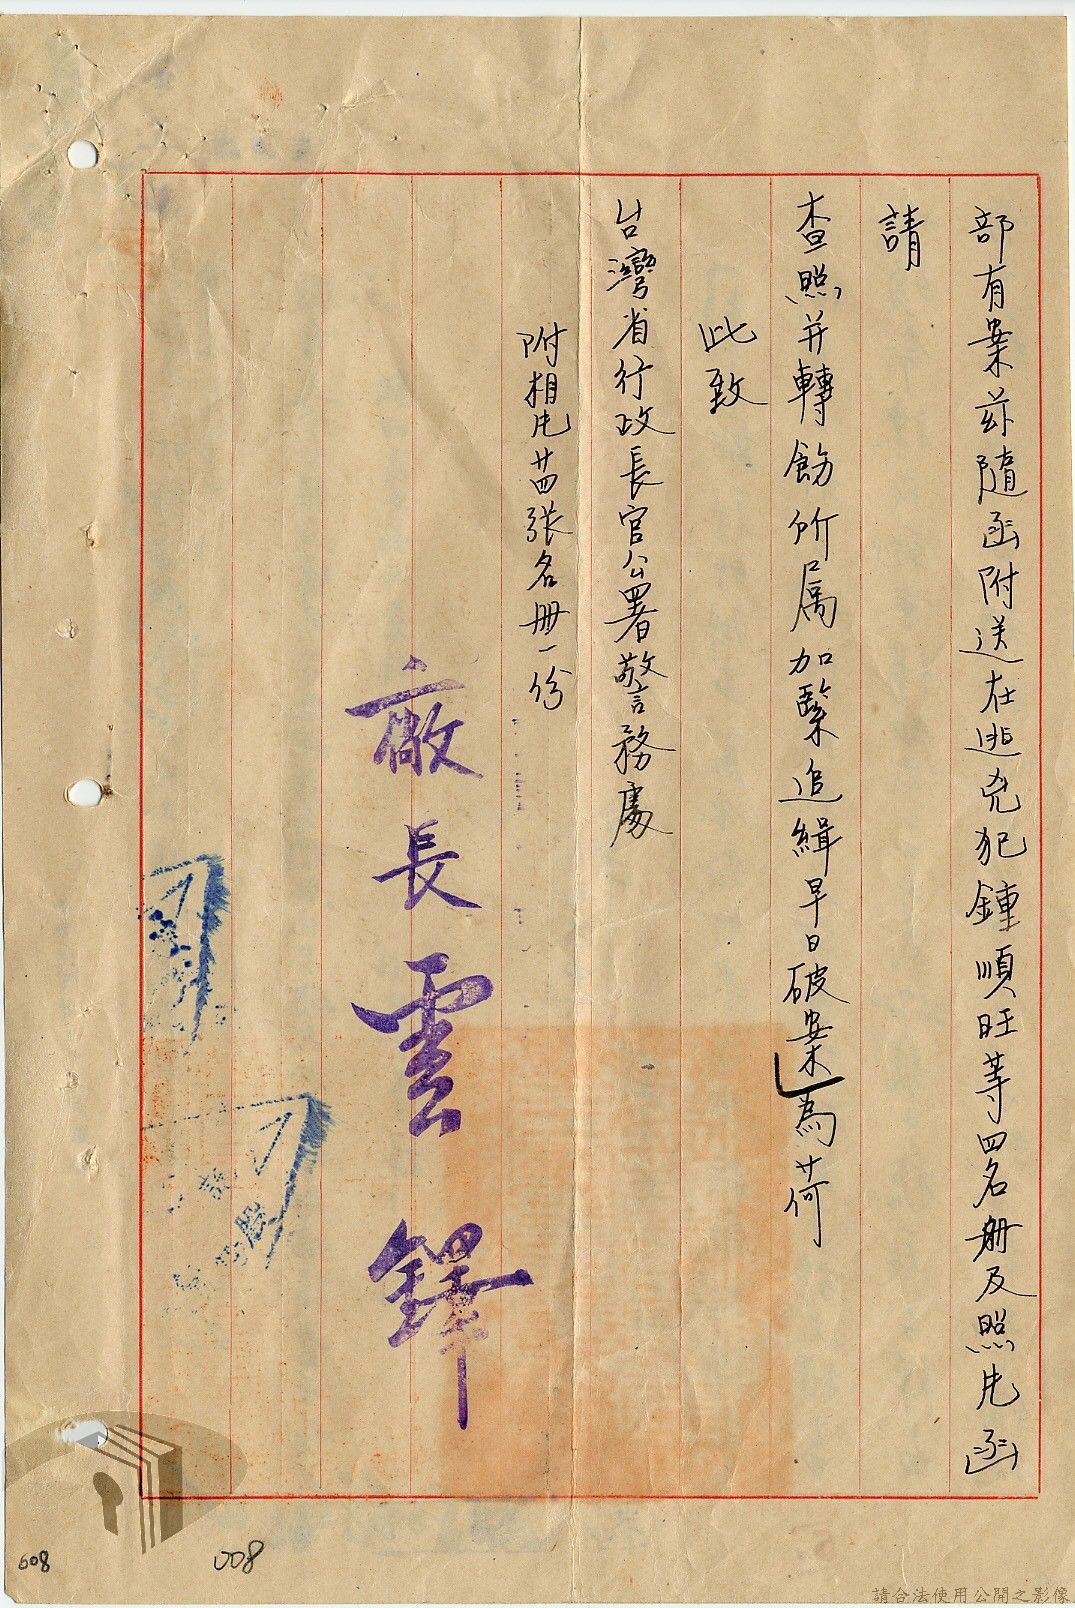 部有案茲隨函附送在逃兇犯鍾順旺等四名册及照片函
請
查照并轉飭所属加緊追緝早日破案為荷
此致
台灣省行政長官公署警務處
附相片廿四張名册一份
廠長雲鐸
008
008
請合法使用公開之影像